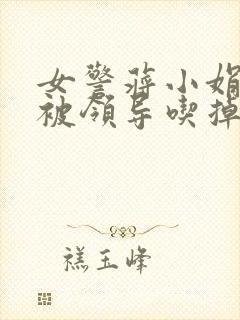 女警蒋小娟
被领导喫掉
禚玉峰